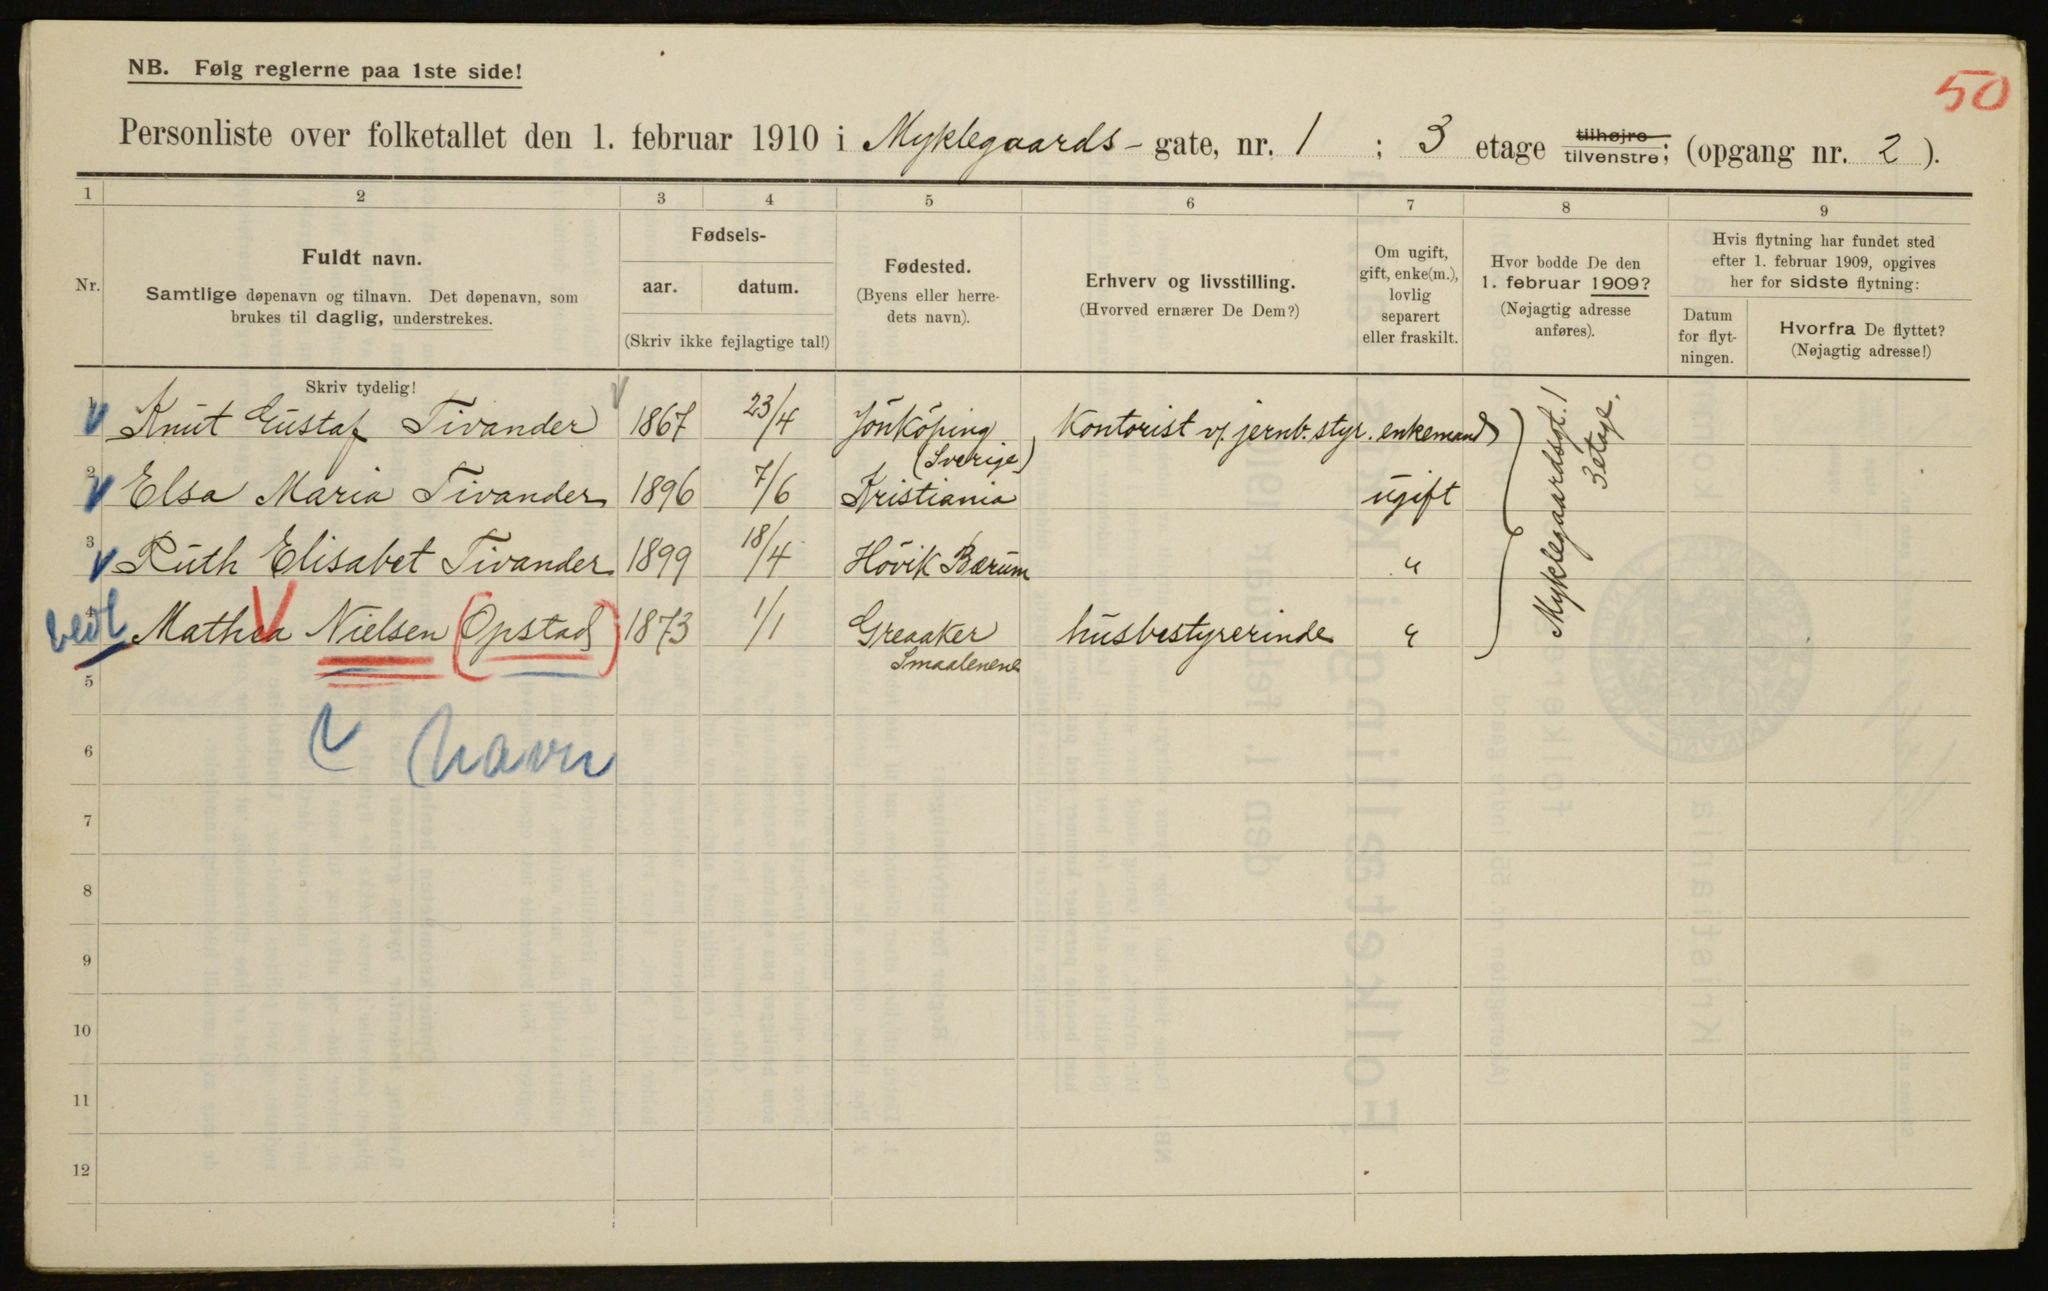 50
NB. Følg reglerne paa 1ste side!
Personliste over folketallet den 1. februar 1910 i Myklegaards- gate, nr. 1 ; 3 etage tilhøjre tilvenstre; (opgang nr. 2 ).
1 2 3 4 5 6 7 8 9
Nr.
Fuldt navn.
Samtlige døpenavn og tilnavn. Det døpenavn, som
brukes til daglig, understrekes.
Fødsels-
aar. datum.
(Skriv ikke fejlagtige tal!)
Fødested.
(Byens eller herre-
dets navn).
Erhverv og livsstilling.
(Hvorved ernærer De Dem?)
Om ugift,
gift, enke(m.),
lovlig
separert
eller fraskilt.
Hvor bodde De den
1. februar 1909?
(Nøjagtig adresse
anføres).
Hvis flytning har fundet sted
efter 1. februar 1909, opgives
her for sidste flytning:
Datum
for flyt-
ningen.
Hvorfra De flyttet?
(Nøjagtig adresse!)
Skriv tydelig!
1 Knut Gustaf Tivander 1867 23/4 Jönköping (Sverige) Kontorist v/ jernb. styr. enkemand
2 Elsa Maria Tivander 1896 7/6 Kristiania ugift
3 Ruth Elisabet Tivander 1899 18/4 Hövik Bærum "
4 Mathea Nielsen (Opstad) 1873 1/1 Greaaker Smaalenene husbestyrerinde "
Myklegaardsgt. 1
3 etage.
5
navn
6
7
8
9
10
11
12